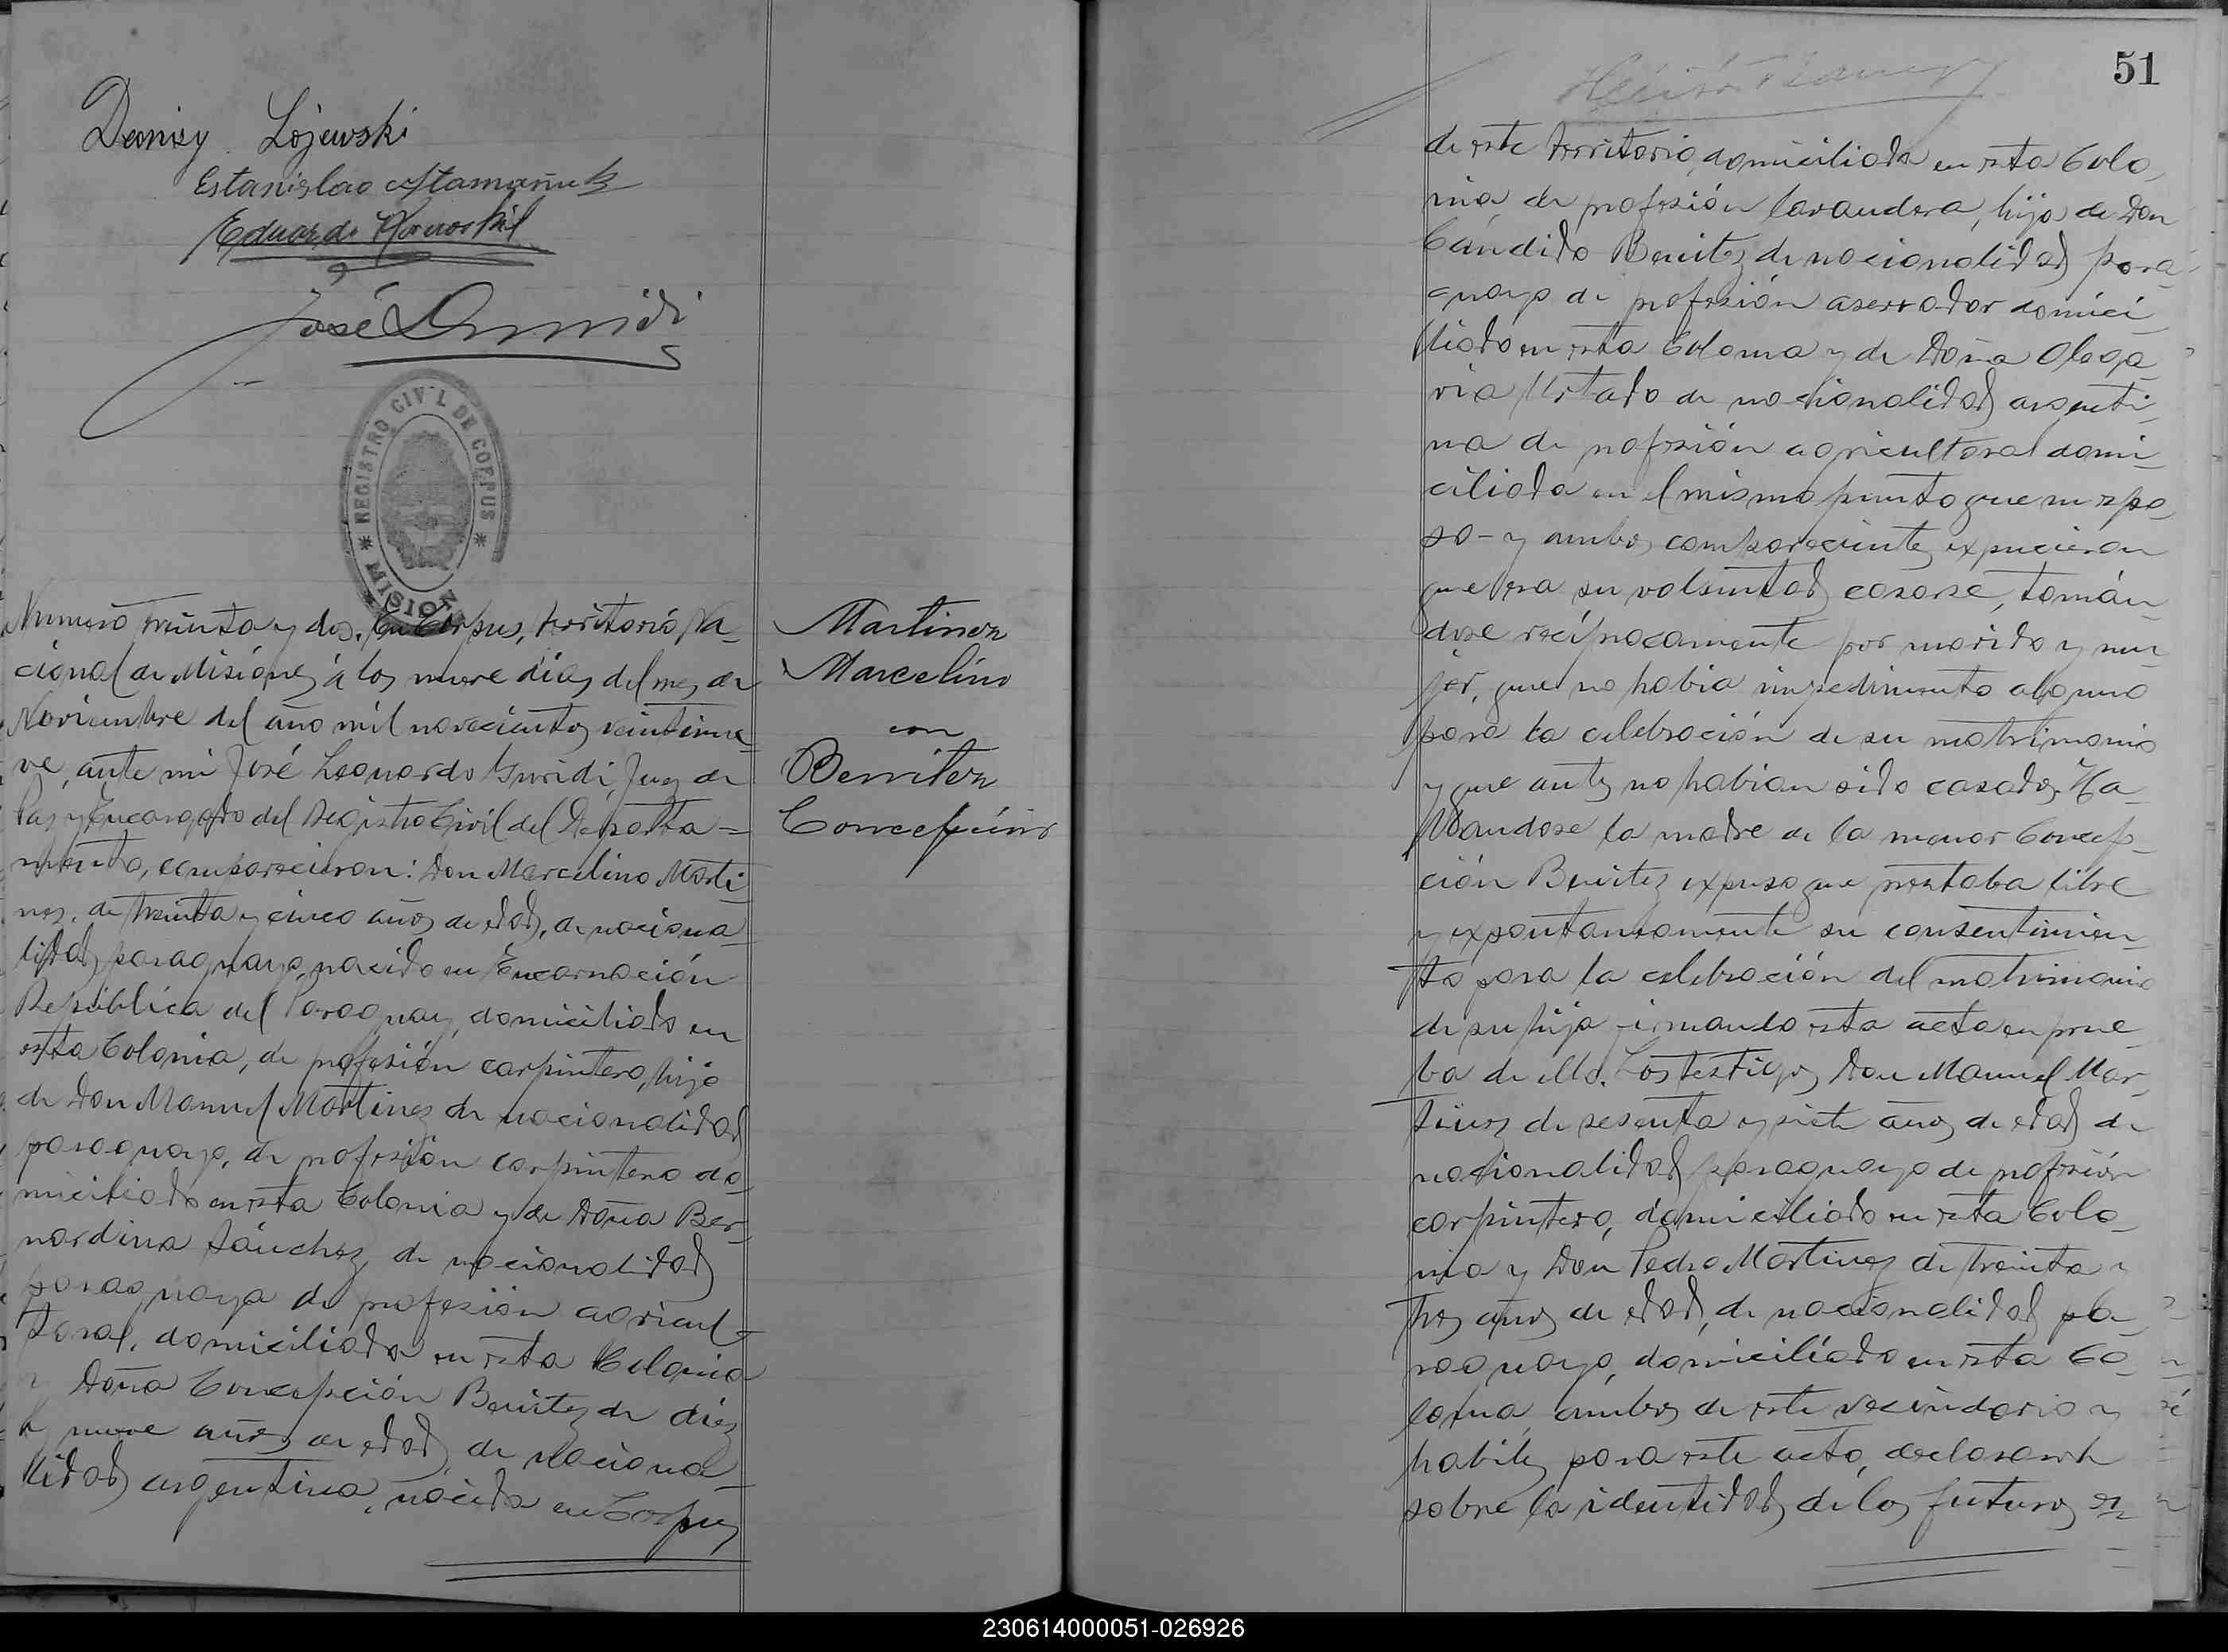 Lojewski
Estanislao
Eduardo
José
REGISTRO CIVIL DE CORPUS
* MISIONES *
Numero treinta y dos. En Corpus, territorio Na-
cional de Misiones á los nueve dias del mes de
Noviembre del año mil novecientos veintinue-
ve, ante mi José Leonardo Guridi, Juez de
Paz y Encargado del Registro Civil del Departa=
mento, comparecieron: Don Marcelino Marti-
nez, de treinta y cinco años de edad, de naciona-
lidad paraguaya, nacido en Encarnación
República del Paraguay, domiciliado en
esta Colonia, de profesión carpintero, hijo
de Don Manuel Martinez de nacionalidad
paraguaya, de profesión carpintero do-
miciliado en esta Colonia y de Doña Ber-
nardina Sánchez, de nacionalidad
paraguaya de profesión agricul-
toral, domiciliada en esta Colonia
y Doña Concepción Benitez de diez
y nueve años de edad, de naciona-
lidad argentina, nacida en Corpus
Martinez
Marcelino
con
Benitez
Concepción
51
de este territorio, domiciliada en esta Colo-
nia, de profesión lavandera, hija de Don
Cándido Benitez de nacionalidad para-
guayo de profesión aserrador domici-
liado en esta Colonia y de Doña Olega-
ria Urtado de nacionalidad argenti-
na de profesión agricultoral domi-
ciliada en el mismo punto que su espo-
so - y ambos comparecientes expucieron
que era su voluntad casarse, tomán-
dose recíprocamente por marido y mu-
jer, que no habia impedimento alguno
para la celebración de su matrimonio
y que antes no habian sido casados. Ha-
llandose la madre de la menor Concep-
ción Benitez expuso que prestaba libre
y expontaneamente su consentimien-
to para la celebración del matrimonio
de su hija firmando esta acta en prue-
ba de ello. Los testigos Don Manuel Mar-
tinez de sesenta y siete años de edad de
nacionalidad paraguayo de profesión
carpintero, domiciliado en esta Colo-
nia y Don Pedro Martinez de treinta y
tres años de edad, de nacionalidad pa-
raguayo, domiciliado en esta Co-
lonia, ambos de este vecindario y
habiles para este acto, declararon
sobre la identidad de los futuros es-
230614000051-026926